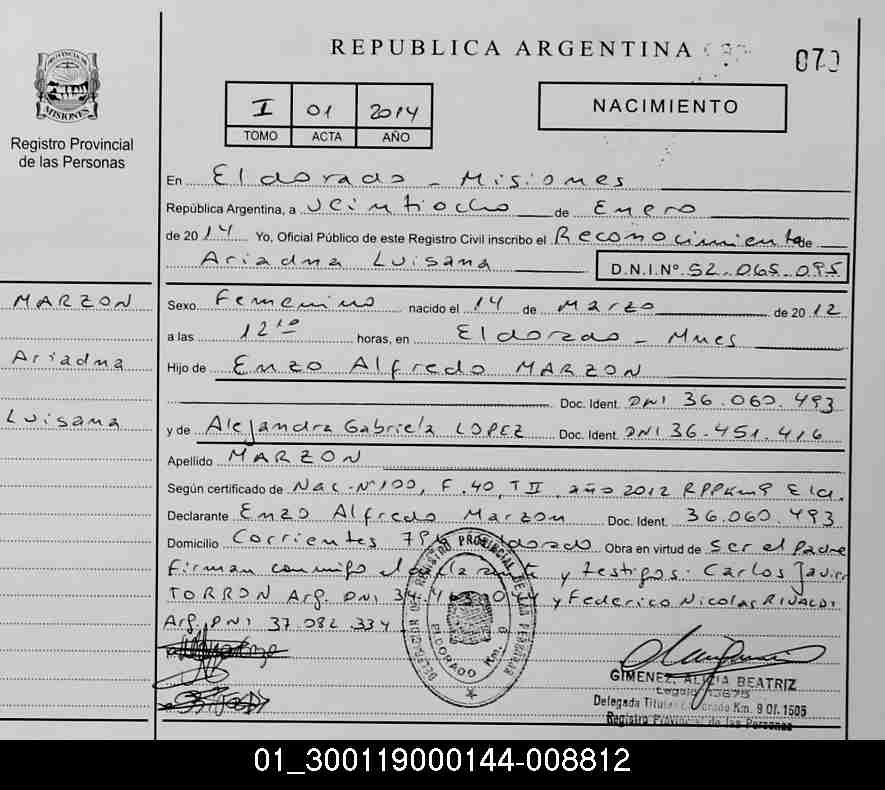 REPUBLICA ARGENTINA
070
PROVINCIA DE MISIONES
Registro Provincial
de las Personas
I 01 2014
TOMO ACTA AÑO
NACIMIENTO
En Eldorado - Misiones
República Argentina, a Veintiocho de Enero
de 2014 Yo, Oficial Público de este Registro Civil inscribo el Reconocimiento de
Ariadna Luisana D.N.I.Nº 52.065.095
MARZON
Ariadna
Luisana
Sexo Femenino nacido el 14 de Marzo de 2012
a las 12¹⁰ horas, en Eldorado - Mnes
Hijo de Enzo Alfredo MARZON
Doc. Ident. DNI 36.060.493
y de Alejandra Gabriela LOPEZ Doc. Ident. DNI 36.451.416
Apellido MARZON
Según certificado de Nac. Nº 100, F. 40, T II, año 2012 RPPKm9 Eld.
Declarante Enzo Alfredo Marzon Doc. Ident. 36.060.493
Domicilio Corrientes Eldorado Obra en virtud de ser el padre
Firman conmigo el declarante y testigos: Carlos Javier
TORRON Arg. DNI y Federico Nicolas RIVALDI
Arg. DNI 37.082.334
DELEGACION DEL REGISTRO PROVINCIAL DE LAS PERSONAS
ELDORADO Km. 9
GIMENEZ, ALICIA BEATRIZ
Legajo 13675
Delegada Titular Eldorado Km. 9 Of. 1505
Registro Provincial de las Personas
01_300119000144-008812